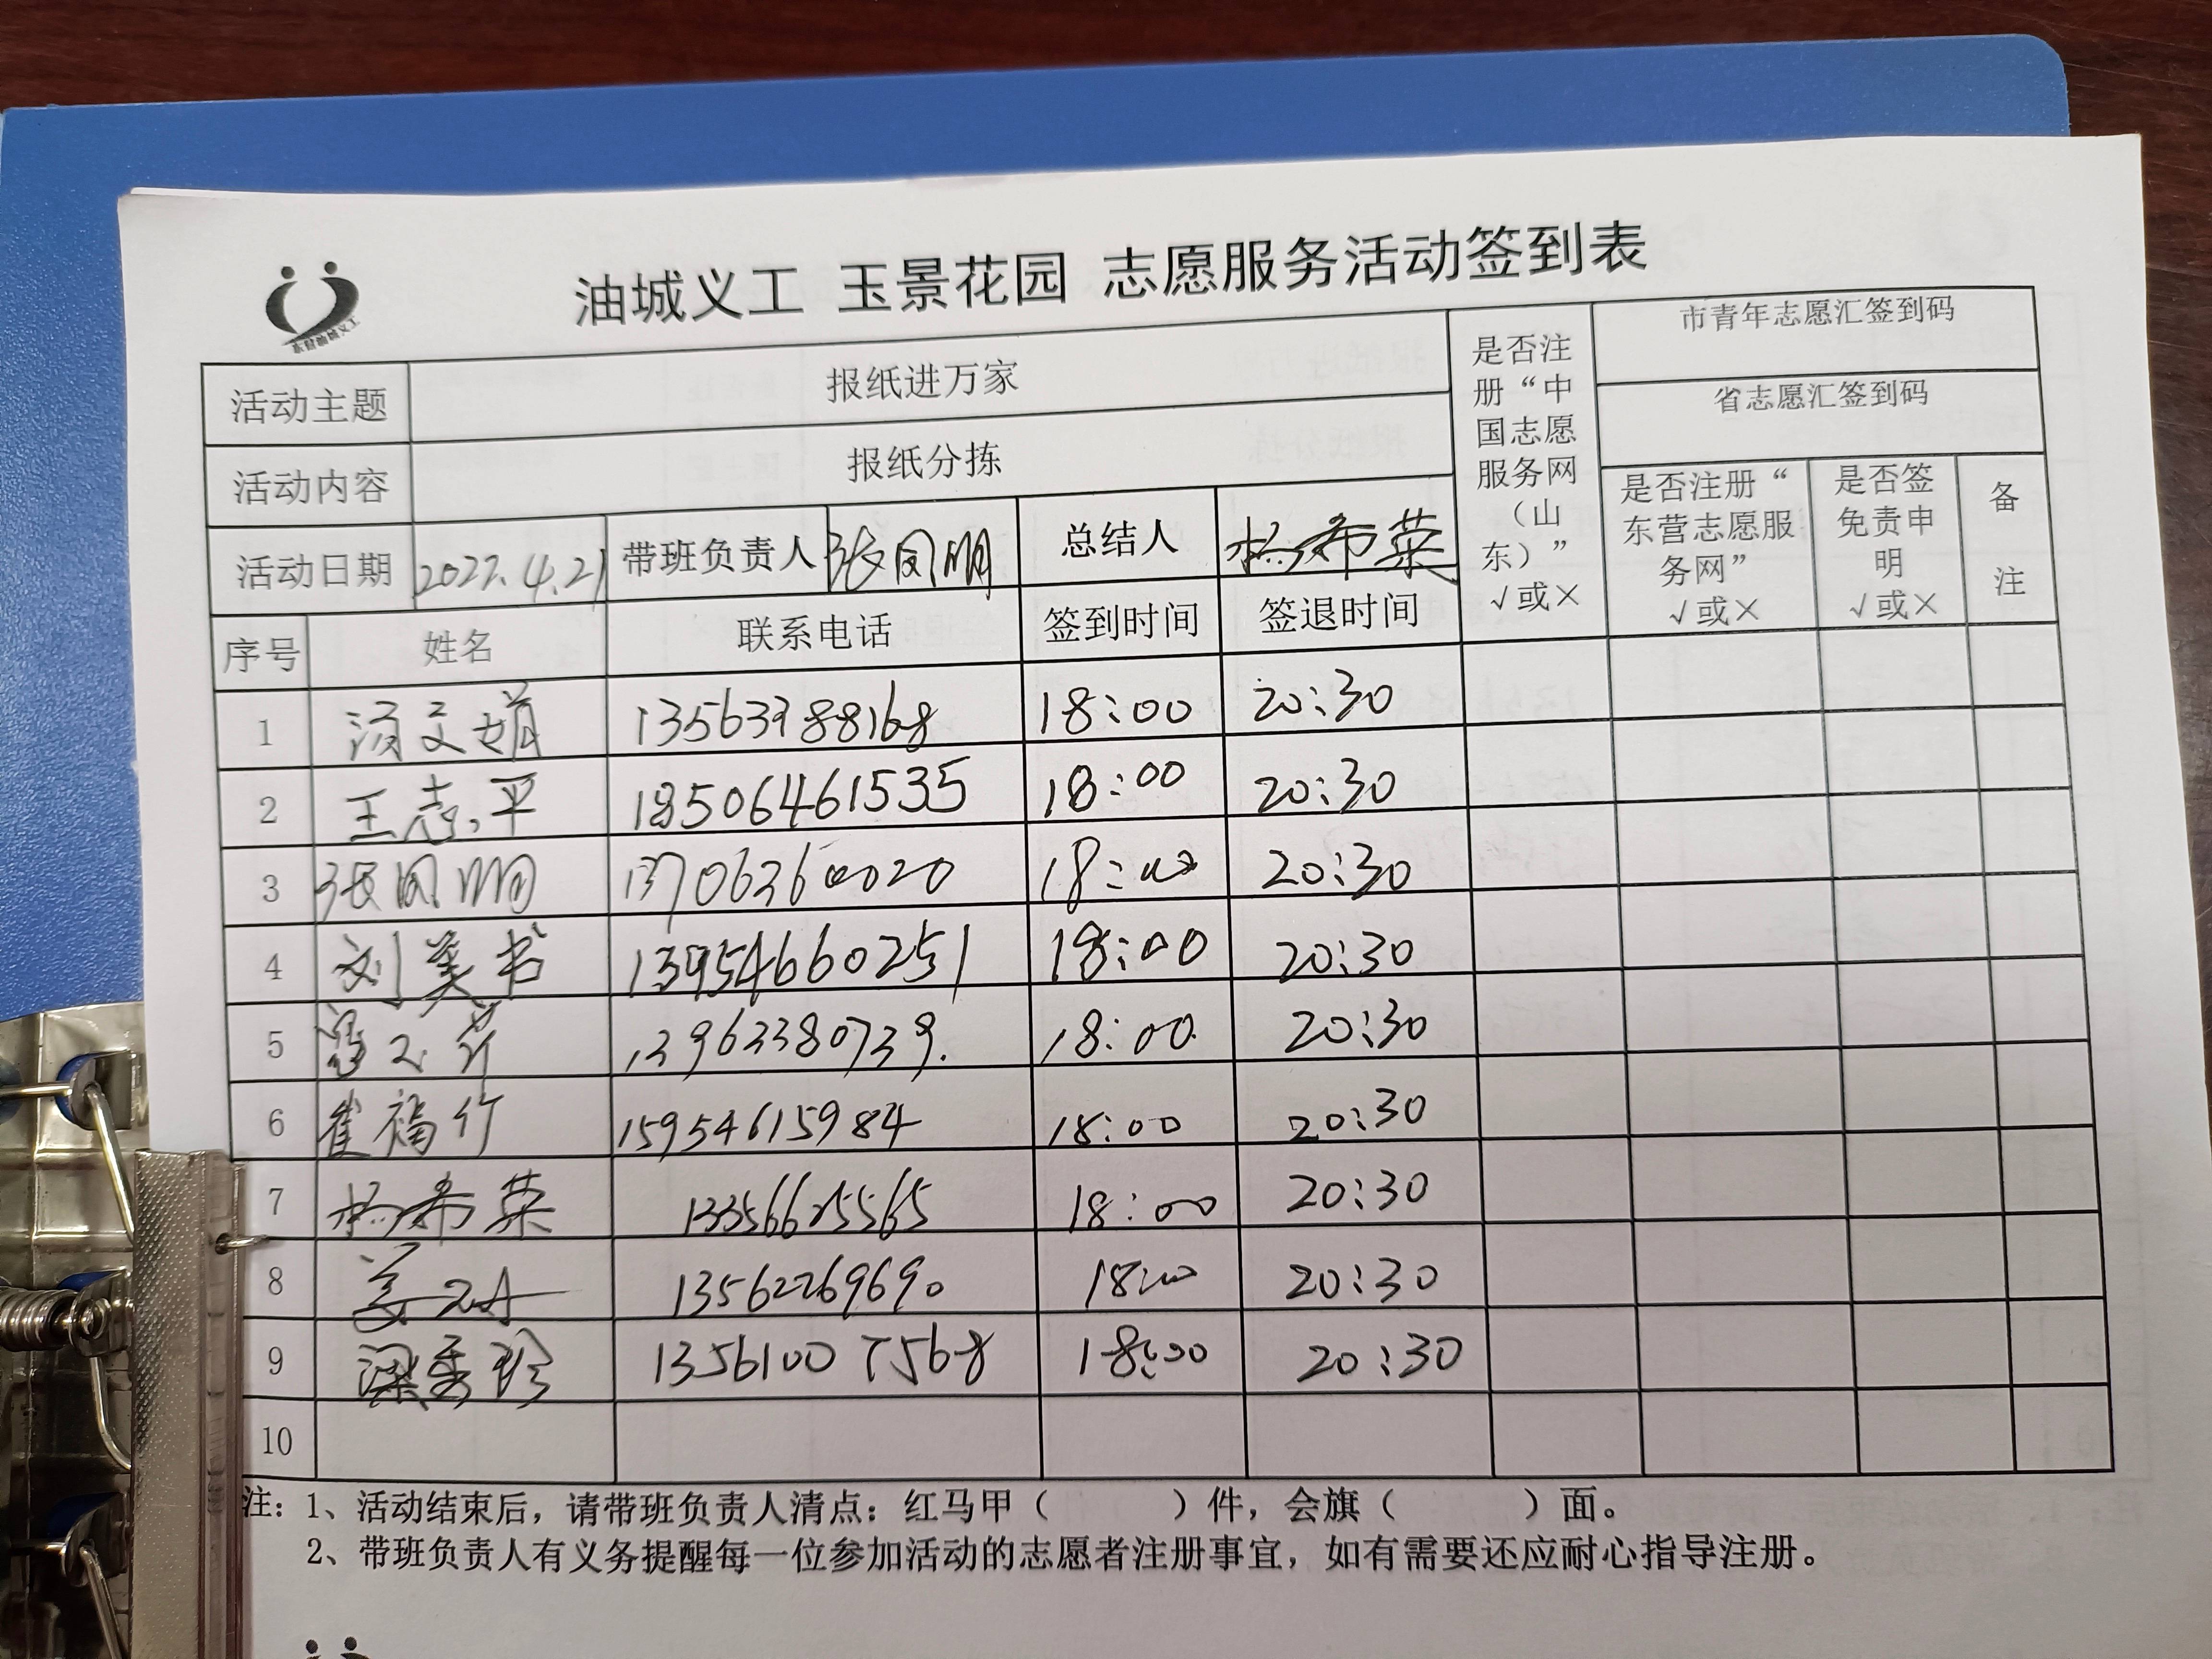 油城义工 玉景花园 志愿服务活动签到表
东营油城义工
活动主题 报纸进万家
活动内容 报纸分拣
活动日期 2022.4.21 带班负责人 张凤明 总结人 杨希荣
是否注册“中国志愿服务网(山东)”√或×
市青年志愿汇签到码
省志愿汇签到码
是否注册“东营志愿服务网”√或×
是否签免责申明√或×
备注
序号 姓名 联系电话 签到时间 签退时间
1 汤文娟 18:00 20:30
2 王志平 18506461535 18:00 20:30
3 张凤明 13706360020 18:00 20:30
4 刘美书 13954660251 18:00 20:30
5 18:00 20:30
6 崔福竹 15954615984 18:00 20:30
7 杨希荣 13356625565 18:00 20:30
8 13562269690 18:00 20:30
9 梁秀珍 13561007568 18:00 20:30
10
注:1、活动结束后,请带班负责人清点:红马甲( )件,会旗( )面。
2、带班负责人有义务提醒每一位参加活动的志愿者注册事宜,如有需要还应耐心指导注册。